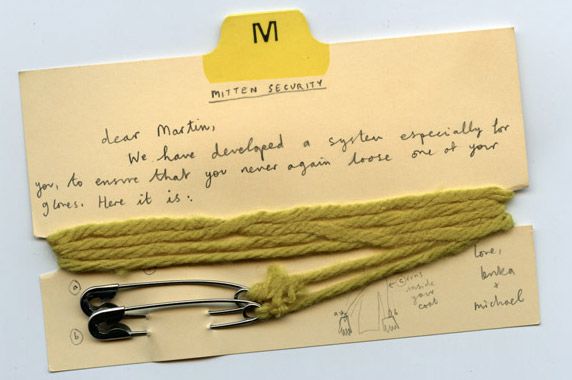 M
MITTEN SECURITY
dear Martin,
We have developed a system especially for
you, to ensure that you never again loose one of your
gloves. Here it is:
a
b
strings
inside
your
coat
a
b
love,
+
michael